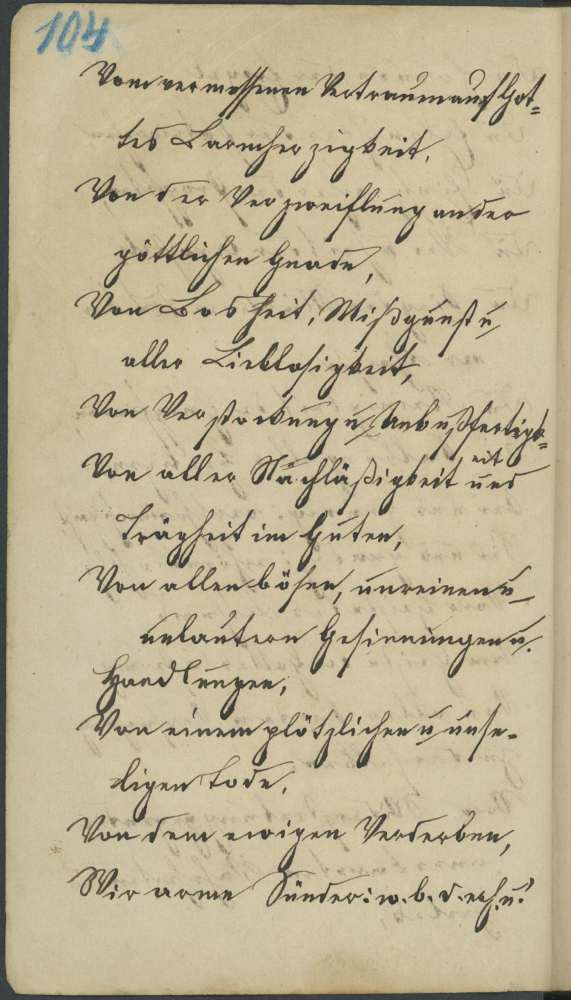 104
Vom vermessenen Vertraun auf Got=
tes Barmherzigkeit,
Von der Verzweiflung an der
göttlichen Gnade,
Von Bosheit, Mißgunst u
aller Lieblosigkeit,
Von Verstockung u Unbußfertigk=
eit
Von aller Nachläßigkeit und
Trägheit im Guten,
Von allen bösen, unreinen u
unlautern Gesinnungen u.
Handlungen,
Von einem plötzlichen u unse-
ligen Tode,
Von dem ewigen Verderben,
Wir arme Sünder: w. b. d. erh. u!